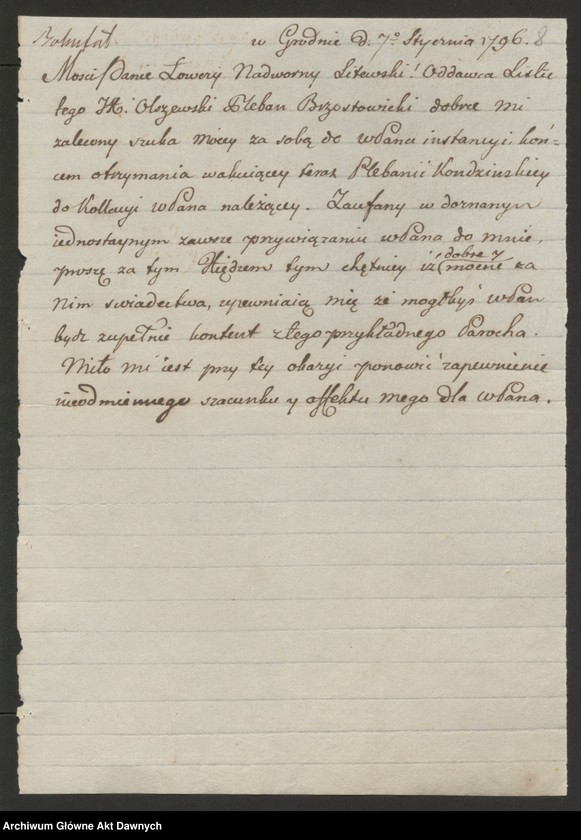 w Grodnie d. 7º Stycznia 1796. 8
Mosci Panie Łowczy Nadworny Litewski! Oddawca Listu
tego JX. Olszewski Pleban Brzostowicki dobrze mi
zalecony szuka mocey za sobą do wPana instancyi, koń=
cem otrzymania wakuiącey teraz Plebanii Kondzinskiey
do Kollacyi wPana należącey. Zaufany w doznanym
iednostaynym zawsze przywiązaniu wPana do mnie,
proszę za tym Xiędzem tym chętniey iż dobre y mocne za
Nim swiadectwa, upewniaią mię że mogłbyś wPan
bydz zupełnie kontent z tego przykładnego Parocha.
Miło mi iest przy tey okazyi ponowić zapewnienie
nieodmiennego szacunku y affektu mego dla wPana.
Archiwum Główne Akt Dawnych